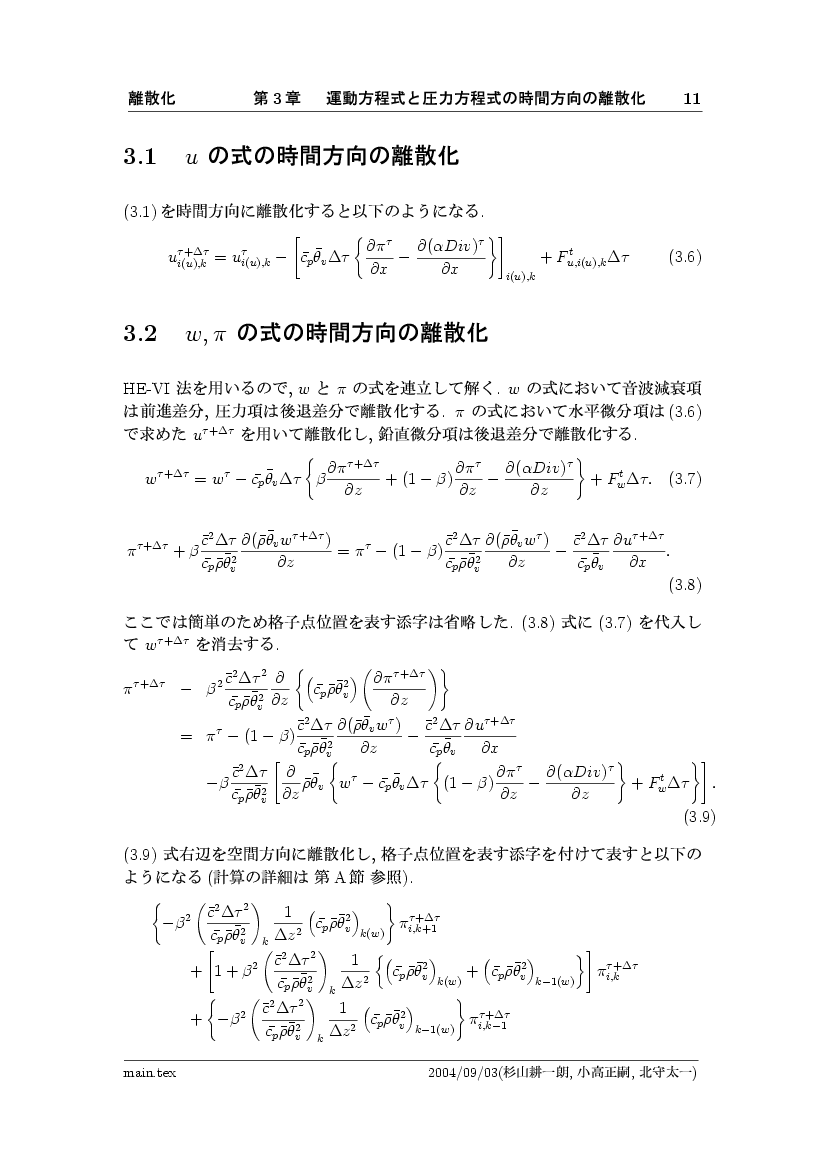 離散化 第 3 章 運動方程式と圧力方程式の時間方向の離散化 11
3.1 $u$ の式の時間方向の離散化
(3.1) を時間方向に離散化すると以下のようになる.
$u^{\tau+\Delta\tau}_{i(u),k} = u^{\tau}_{i(u),k} - \left[\bar{c_p}\bar{\theta}_v\Delta\tau\left\{\frac{\partial\pi^{\tau}}{\partial x} - \frac{\partial(\alpha Div)^{\tau}}{\partial x}\right\}\right]_{i(u),k} + F^{t}_{u,i(u),k}\Delta\tau$ (3.6)
3.2 $w, \pi$ の式の時間方向の離散化
HE-VI 法を用いるので, $w$ と $\pi$ の式を連立して解く. $w$ の式において音波減衰項
は前進差分, 圧力項は後退差分で離散化する. $\pi$ の式において水平微分項は (3.6)
で求めた $u^{\tau+\Delta\tau}$ を用いて離散化し, 鉛直微分項は後退差分で離散化する.
$w^{\tau+\Delta\tau} = w^{\tau} - \bar{c_p}\bar{\theta}_v\Delta\tau\left\{\beta\frac{\partial\pi^{\tau+\Delta\tau}}{\partial z} + (1-\beta)\frac{\partial\pi^{\tau}}{\partial z} - \frac{\partial(\alpha Div)^{\tau}}{\partial z}\right\} + F^{t}_{w}\Delta\tau.$ (3.7)
$\pi^{\tau+\Delta\tau} + \beta\frac{\bar{c}^2\Delta\tau}{\bar{c_p}\bar{\rho}\bar{\theta}_v^2}\frac{\partial(\bar{\rho}\bar{\theta}_v w^{\tau+\Delta\tau})}{\partial z} = \pi^{\tau} - (1-\beta)\frac{\bar{c}^2\Delta\tau}{\bar{c_p}\bar{\rho}\bar{\theta}_v^2}\frac{\partial(\bar{\rho}\bar{\theta}_v w^{\tau})}{\partial z} - \frac{\bar{c}^2\Delta\tau}{\bar{c_p}\bar{\theta}_v}\frac{\partial u^{\tau+\Delta\tau}}{\partial x}.$
(3.8)
ここでは簡単のため格子点位置を表す添字は省略した. (3.8) 式に (3.7) を代入し
て $w^{\tau+\Delta\tau}$ を消去する.
$\pi^{\tau+\Delta\tau} - \beta^2\frac{\bar{c}^2\Delta\tau^2}{\bar{c_p}\bar{\rho}\bar{\theta}_v^2}\frac{\partial}{\partial z}\left\{\left(\bar{c_p}\bar{\rho}\bar{\theta}_v^2\right)\left(\frac{\partial\pi^{\tau+\Delta\tau}}{\partial z}\right)\right\}$
$= \pi^{\tau} - (1-\beta)\frac{\bar{c}^2\Delta\tau}{\bar{c_p}\bar{\rho}\bar{\theta}_v^2}\frac{\partial(\bar{\rho}\bar{\theta}_v w^{\tau})}{\partial z} - \frac{\bar{c}^2\Delta\tau}{\bar{c_p}\bar{\theta}_v}\frac{\partial u^{\tau+\Delta\tau}}{\partial x}$
$-\beta\frac{\bar{c}^2\Delta\tau}{\bar{c_p}\bar{\rho}\bar{\theta}_v^2}\left[\frac{\partial}{\partial z}\bar{\rho}\bar{\theta}_v\left\{w^{\tau} - \bar{c_p}\bar{\theta}_v\Delta\tau\left\{(1-\beta)\frac{\partial\pi^{\tau}}{\partial z} - \frac{\partial(\alpha Div)^{\tau}}{\partial z}\right\} + F^{t}_{w}\Delta\tau\right\}\right].$
(3.9)
(3.9) 式右辺を空間方向に離散化し, 格子点位置を表す添字を付けて表すと以下の
ようになる (計算の詳細は 第 A 節 参照).
$\left\{-\beta^2\left(\frac{\bar{c}^2\Delta\tau^2}{\bar{c_p}\bar{\rho}\bar{\theta}_v^2}\right)_k\frac{1}{\Delta z^2}\left(\bar{c_p}\bar{\rho}\bar{\theta}_v^2\right)_{k(w)}\right\}\pi^{\tau+\Delta\tau}_{i,k+1}$
$+\left[1+\beta^2\left(\frac{\bar{c}^2\Delta\tau^2}{\bar{c_p}\bar{\rho}\bar{\theta}_v^2}\right)_k\frac{1}{\Delta z^2}\left\{\left(\bar{c_p}\bar{\rho}\bar{\theta}_v^2\right)_{k(w)} + \left(\bar{c_p}\bar{\rho}\bar{\theta}_v^2\right)_{k-1(w)}\right\}\right]\pi^{\tau+\Delta\tau}_{i,k}$
$+\left\{-\beta^2\left(\frac{\bar{c}^2\Delta\tau^2}{\bar{c_p}\bar{\rho}\bar{\theta}_v^2}\right)_k\frac{1}{\Delta z^2}\left(\bar{c_p}\bar{\rho}\bar{\theta}_v^2\right)_{k-1(w)}\right\}\pi^{\tau+\Delta\tau}_{i,k-1}$
main.tex 2004/09/03(杉山耕一朗, 小高正嗣, 北守太一)